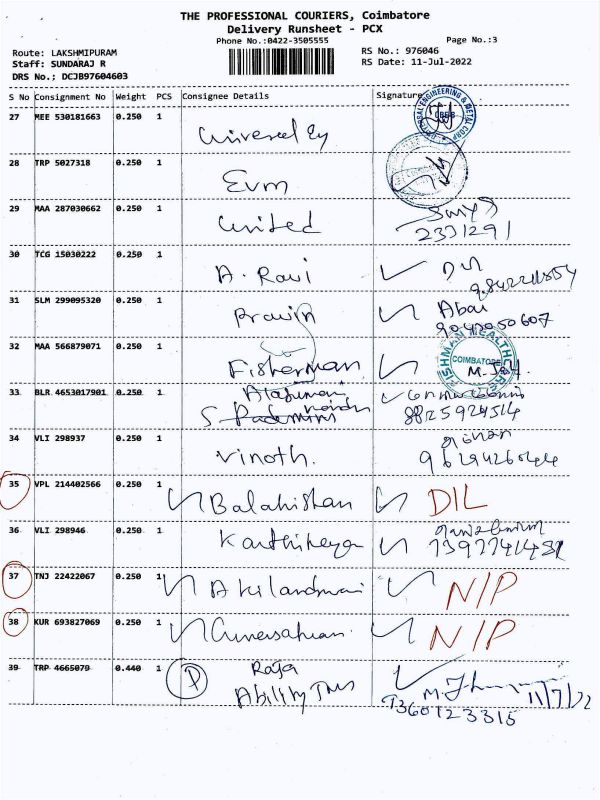 THE PROFESSIONAL COURIERS, Coimbatore
Delivery Runsheet - PCX
Phone No.:0422-3505555 Page No.:3
Route: LAKSHMIPURAM RS No.: 976046
Staff: SUNDARAJ R RS Date: 11-Jul-2022
DRS No.; DCJB97604603
S No Consignment No Weight PCS Consignee Details Signature
27 MEE 530181663 0.250 1
Universal Ey
28 TRP 5027318 0.250 1
Evm
29 MAA 287030662 0.250 1
United 2331291
30 TCG 15030222 0.250 1
A. Ravi
31 SLM 299095320 0.250 1 Abai
Pravin 9042050607
32 MAA 566879071 0.250 1
Fisherman FISHMAN HEALTHCARE COIMBATORE
33 BLR 4653017901 0.250 1
S. Padmini 8825924514
34 VLI 298937 0.250 1
Vinoth.
35 VPL 214402566 0.250 1
Balakishan DIL
36 VLI 298946 0.250 1
Karthikeyan
37 TNJ 22422067 0.250 1
N/P
38 KUR 693827069 0.250 1
N/P
39 TRP 4665079 0.440 1 P Raja
Ability 11/7/22
7360123315